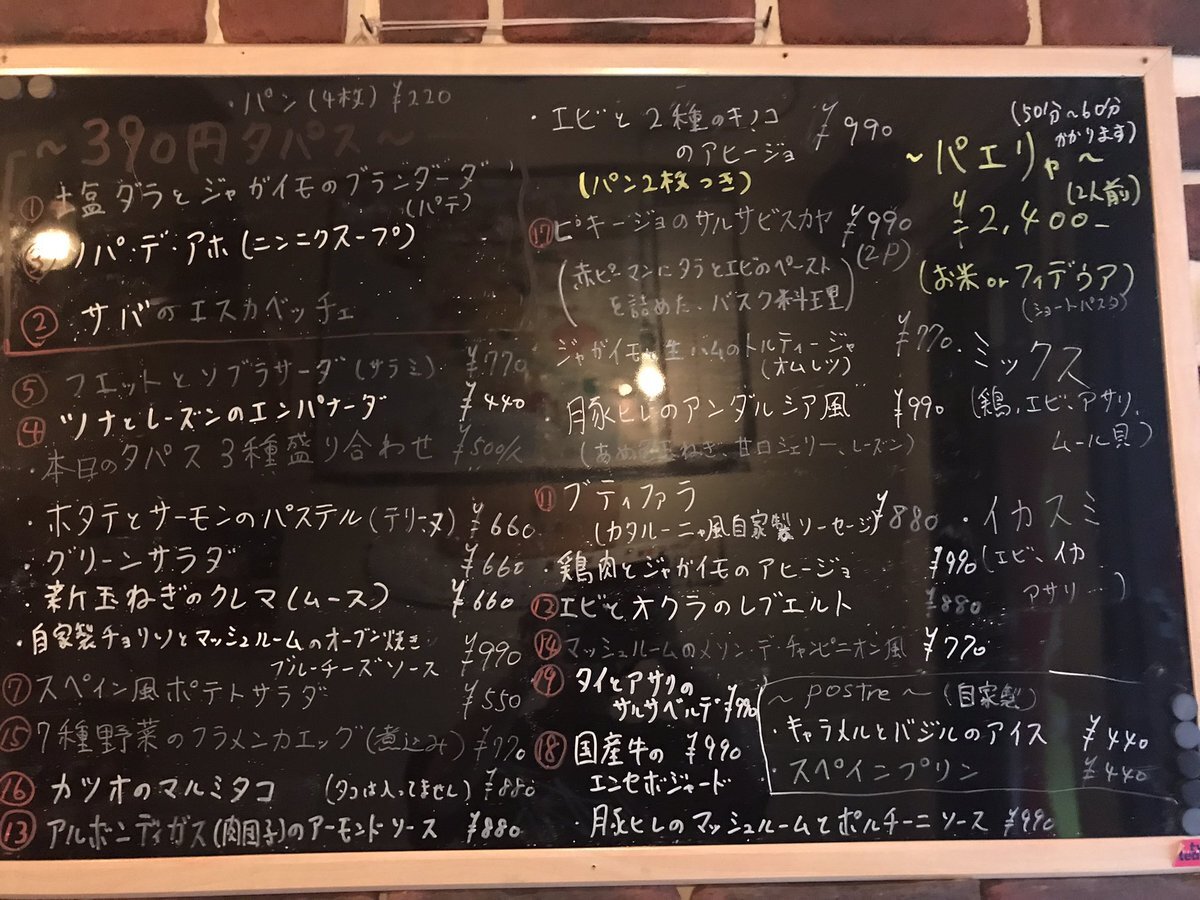 ・パン(4枚) ¥220
～390円タパス～
① 塩ダラとジャガイモのブランダーダ
(パテ)
ソパ・デ・アホ(ニンニクスープ)
② サバのエスカベッチェ
⑤ フエットとソブラサーダ(サラミ) ¥770
④ ツナとレーズンのエンパナーダ ¥440
・本日のタパス3種盛り合わせ ¥500/人
・ホタテとサーモンのパステル(テリーヌ) ¥660
・グリーンサラダ ¥660
・新玉ねぎのクレマ(ムース) ¥660
・自家製チョリソとマッシュルームのオーブン焼き
ブルーチーズソース ¥990
⑦ スペイン風ポテトサラダ ¥550
⑮ 7種野菜のフラメンカエッグ(煮込み) ¥770
⑯ カツオのマルミタコ (タコは入ってません) ¥880
⑬ アルボンディガス(肉団子)のアーモンドソース ¥880
・エビと2種のキノコ
のアヒージョ ¥990
(パン2枚つき)
⑰ ピキージョのサルサビスカヤ ¥990
(2P)
(赤ピーマンにタラとエビのペースト
を詰めた、バスク料理)
ジャガイモと生ハムのトルティージャ ¥770
(オムレツ)
・豚ヒレのアンダルシア風 ¥990
(あめ色玉ねぎ、甘口シェリー、レーズン)
⑪ ブティファラ ¥880
(カタルーニャ風自家製ソーセージ)
・鶏肉とジャガイモのアヒージョ ¥990
⑫ エビとオクラのレブエルト ¥880
⑭ マッシュルームのメソン・デ・チャンピニオン風 ¥770
⑲ タイとアサリの
サルサベルデ ¥990
⑱ 国産牛の ¥990
エンセボジャード
・豚ヒレのマッシュルームとポルチーニソース ¥990
(50分～60分
かかります)
～パエリャ～
(2人前)
¥2,400-
(お米orフィデウア)
(ショートパスタ)
・ミックス
(鶏、エビ、アサリ、
ムール貝)
・イカスミ
(エビ、イカ
アサリ…)
～postre～(自家製)
・キャラメルとバジルのアイス ¥440
・スペインプリン ¥440